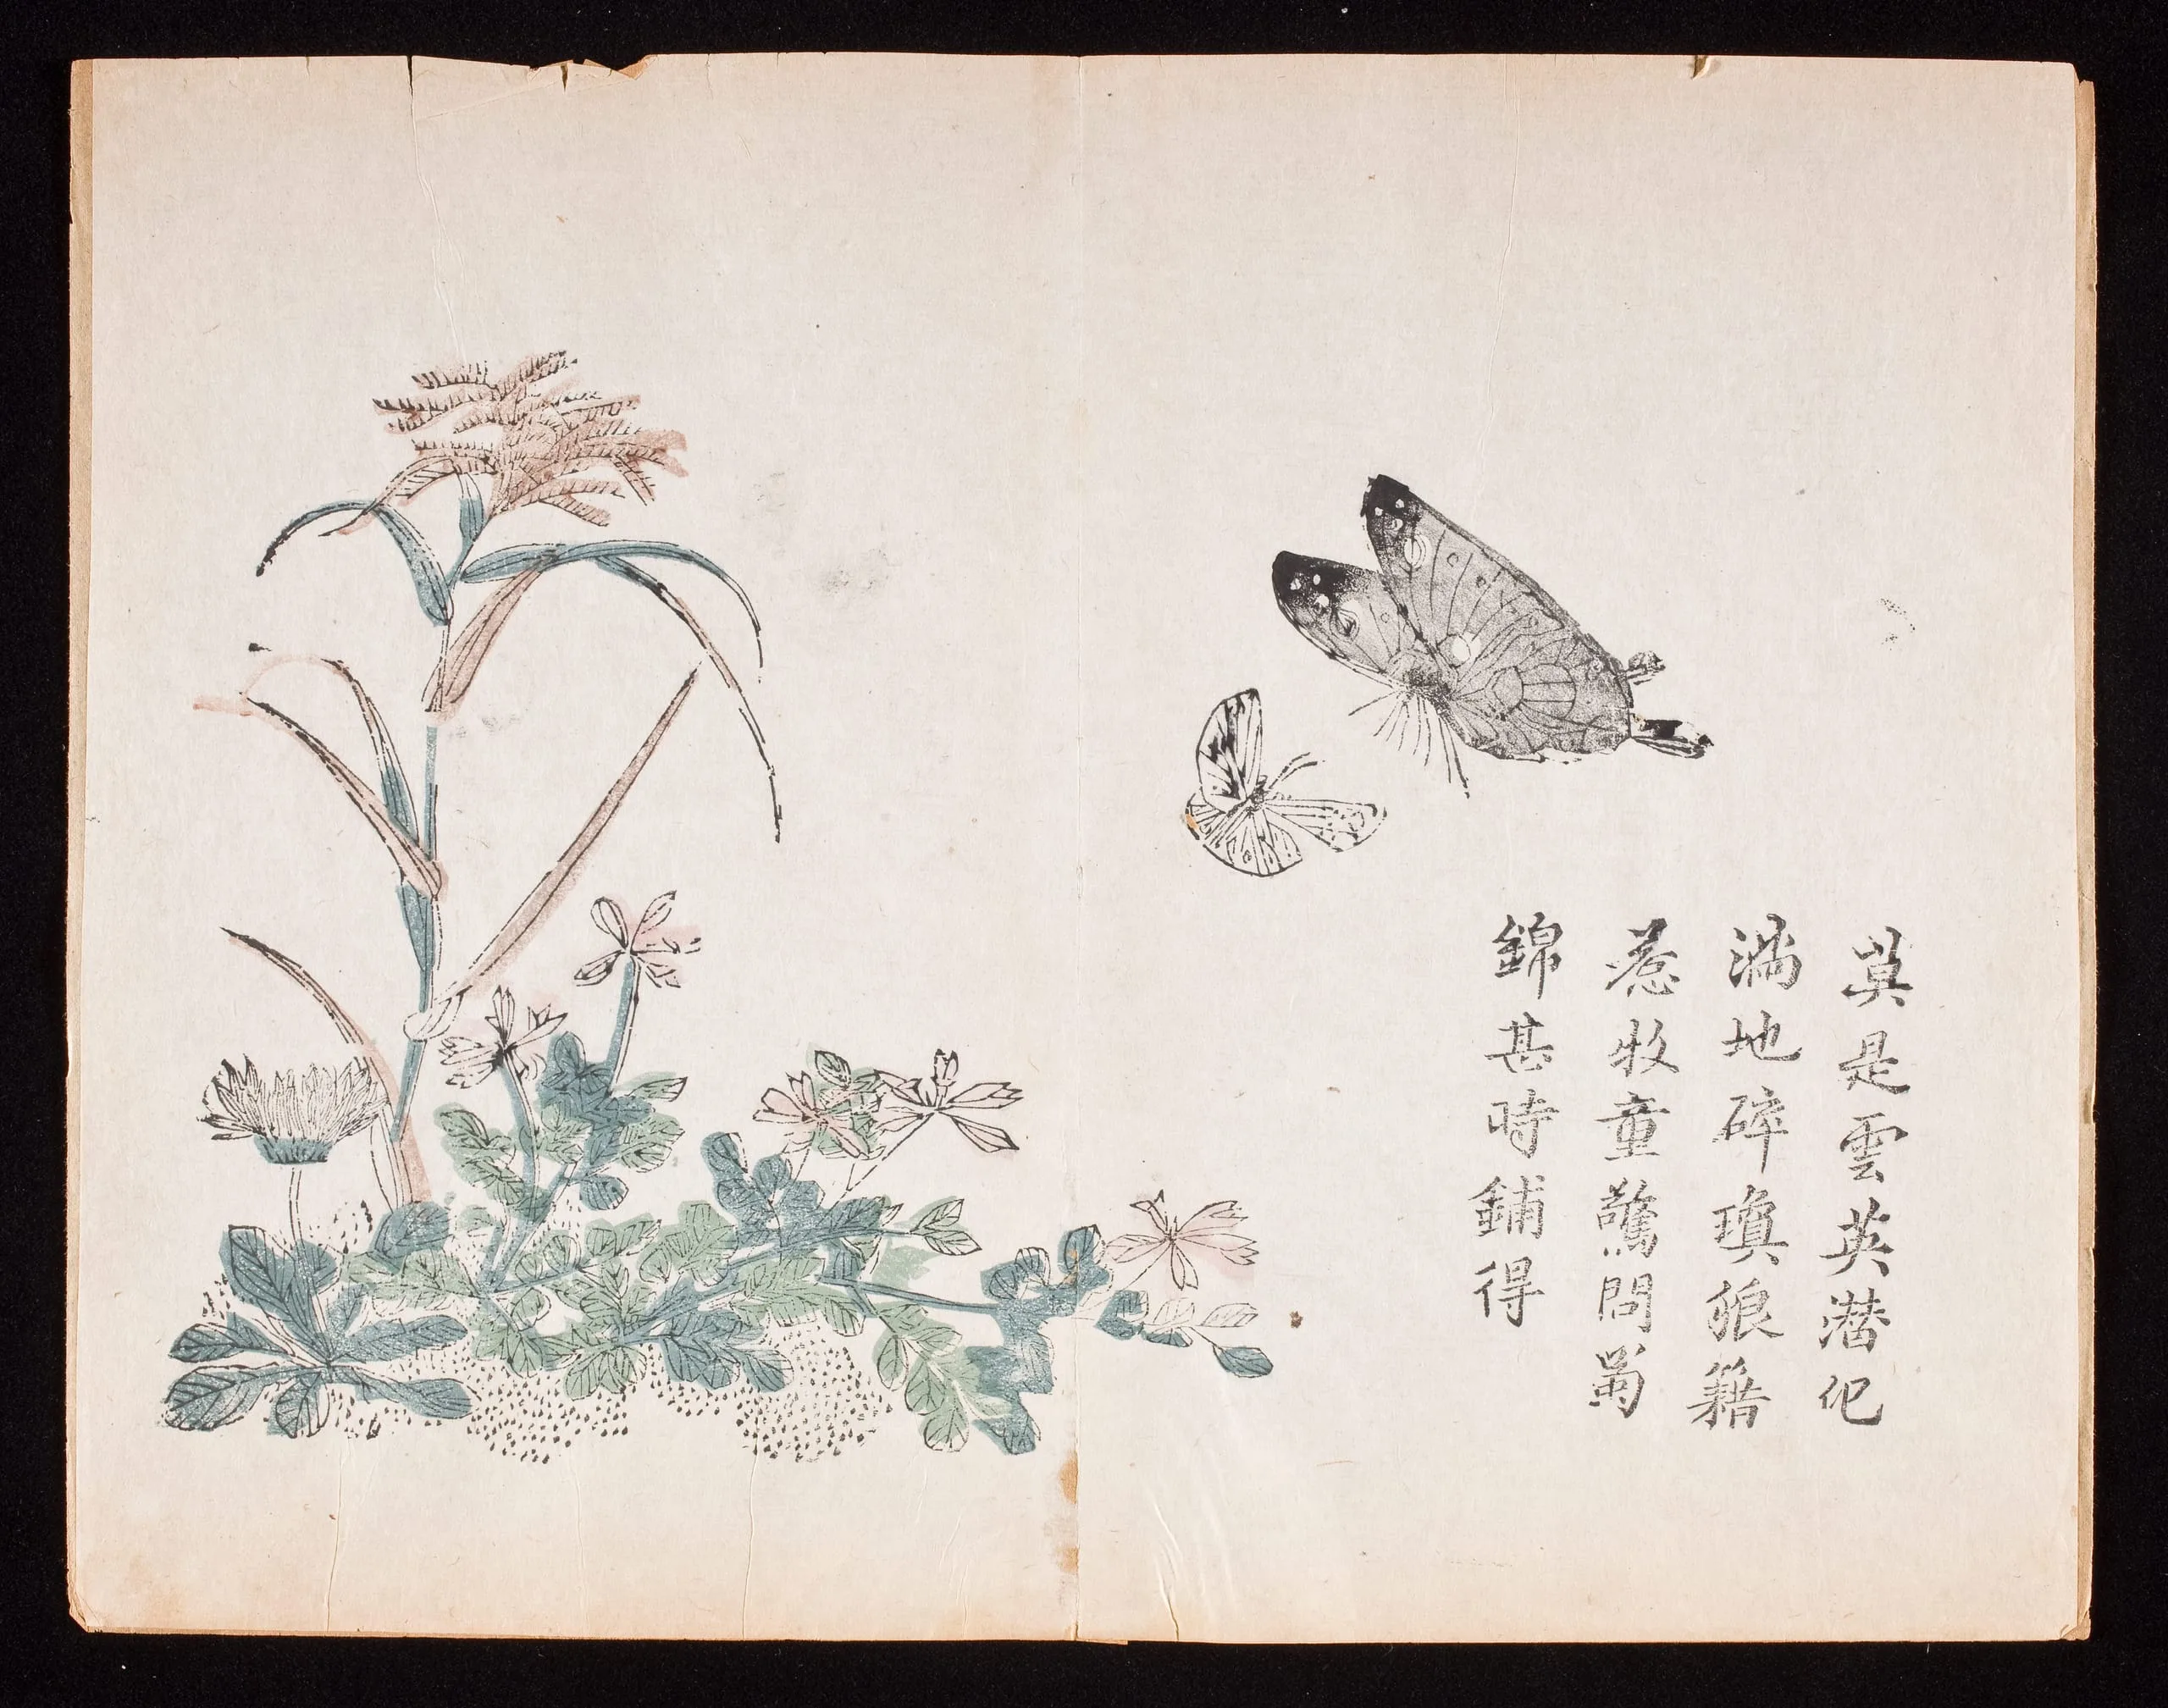 莫是雲英潜化
滿地碎瓊狼籍
惹牧童驚問蜀
錦甚時鋪得